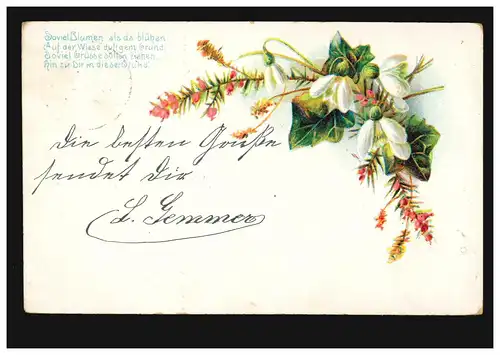 Soviel Blumen als da blühen
Auf der Wiese duftgem Grund
Soviel Grüsse sollen ziehen
Hin zu Dir in dieser Stund.
Die besten Grüße
sendet Dir
L. Gemmer